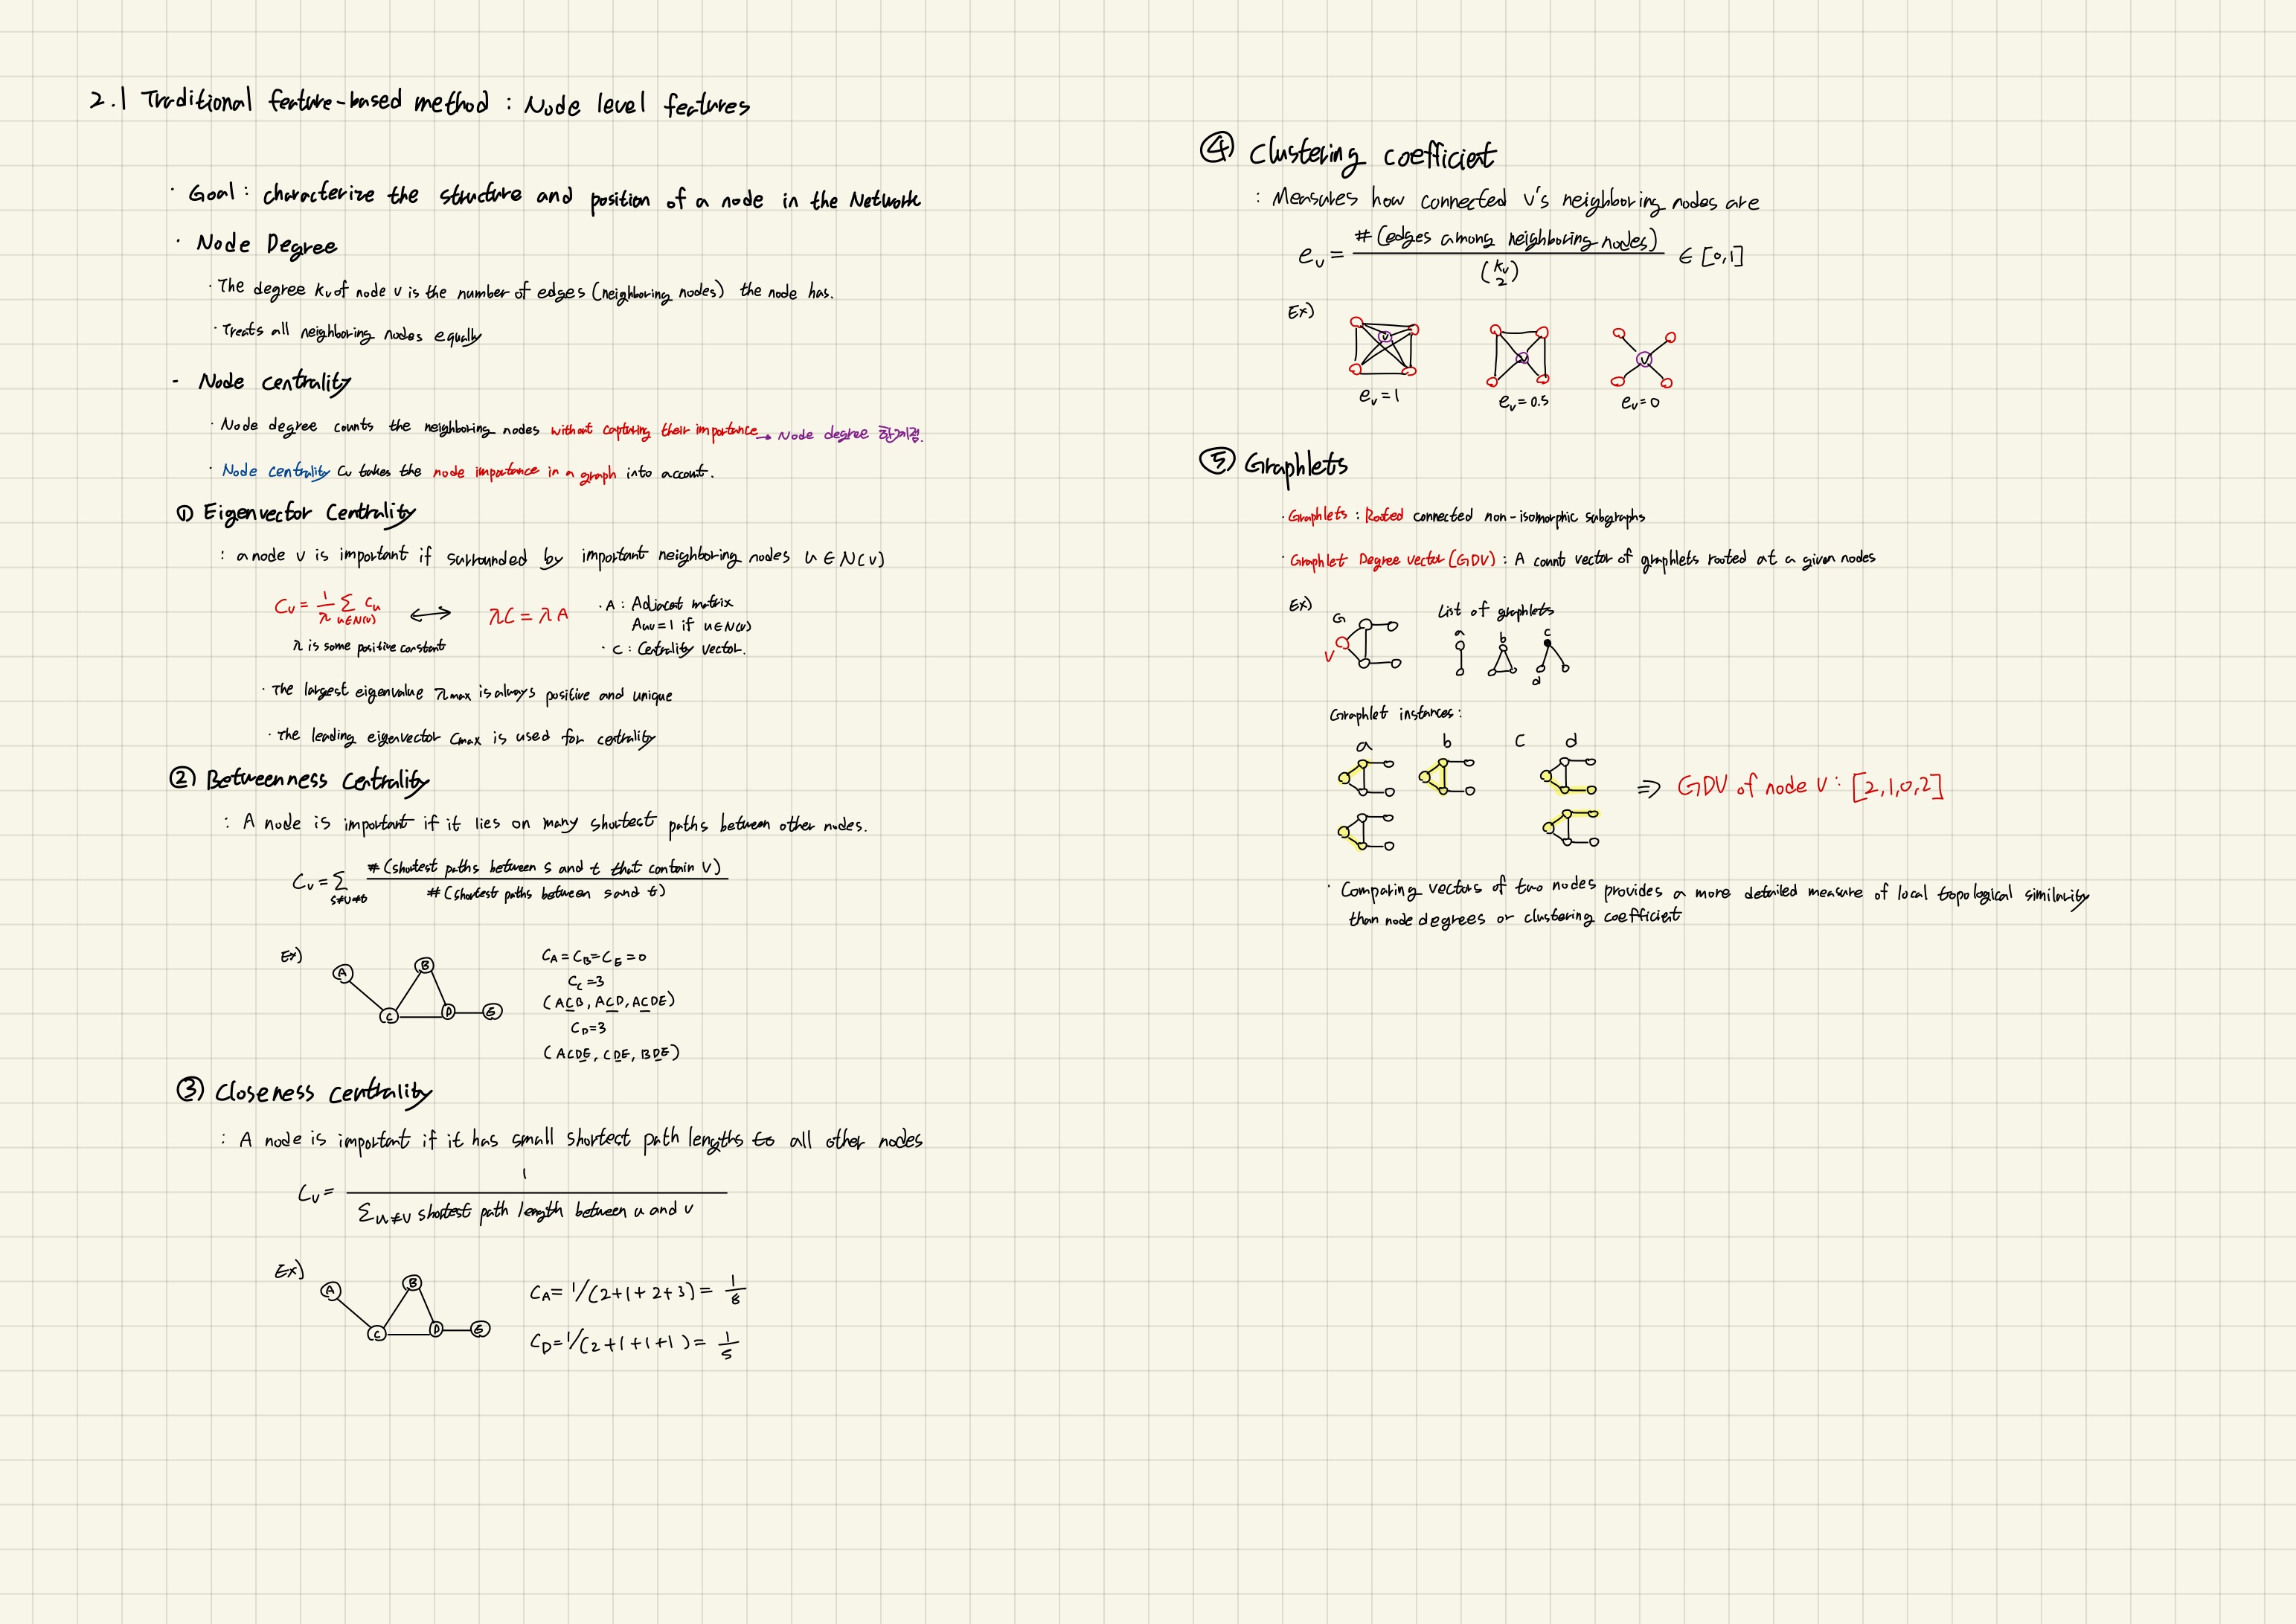 2.1 Traditional feature-based method : Node level features
· Goal : characterize the structure and position of a node in the Network
· Node Degree
· The degree kv of node v is the number of edges (neighboring nodes) the node has.
· Treats all neighboring nodes equally
- Node centrality
· Node degree counts the neighboring nodes without capturing their importance → Node degree 한계점.
· Node centrality Cv takes the node importance in a graph into account.
① Eigenvector Centrality
: a node v is important if surrounded by important neighboring nodes u ∈ N(v)
Cv = 1/λ Σ u∈N(v) Cu ⟷ λC = λA
λ is some positive constant
· A : Adjacent matrix
Auv = 1 if u∈N(v)
· C : Centrality vector.
· The largest eigenvalue λmax is always positive and unique
· The leading eigenvector Cmax is used for centrality
② Betweenness Centrality
: A node is important if it lies on many shortest paths between other nodes.
Cv = Σ s≠v≠t #(shortest paths between s and t that contain v) / #(shortest paths between s and t)
Ex)
A B C D E
CA = CB = CE = 0
CC = 3
(ACB, ACD, ACDE)
CD = 3
(ACDE, CDE, BDE)
③ Closeness centrality
: A node is important if it has small shortest path lengths to all other nodes
Cv = 1 / Σu≠v shortest path length between u and v
Ex)
A B C D E
CA = 1/(2+1+2+3) = 1/8
CD = 1/(2+1+1+1) = 1/5
④ Clustering coefficient
: Measures how connected v's neighboring nodes are
ev = #(edges among neighboring nodes) / (kv 2) ∈ [0,1]
Ex)
v v v
ev = 1 ev = 0.5 ev = 0
⑤ Graphlets
· Graphlets : Rooted connected non-isomorphic subgraphs
· Graphlet Degree vector (GDV) : A count vector of graphlets rooted at a given nodes
Ex)
G
V
List of graphlets
a b c
d
Graphlet instances :
a b c d
⇒ GDV of node v : [2,1,0,2]
· Comparing vectors of two nodes provides a more detailed measure of local topological similarity
than node degrees or clustering coefficient